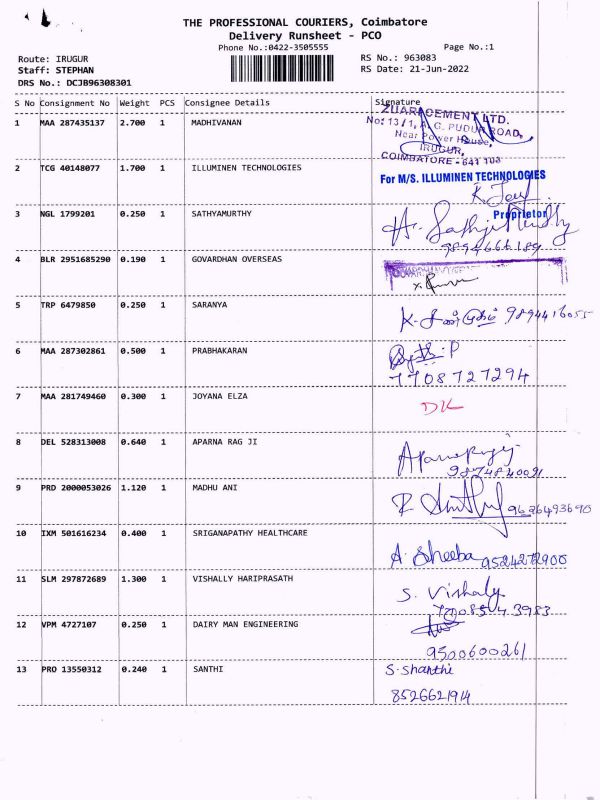 THE PROFESSIONAL COURIERS, Coimbatore
Delivery Runsheet - PCO
Phone No.:0422-3505555
Page No.:1
Route: IRUGUR
RS No.: 963083
Staff: STEPHAN
RS Date: 21-Jun-2022
DRS No.: DCJB96308301
S No Consignment No Weight PCS Consignee Details Signature
1 MAA 287435137 2.700 1 MADHIVANAN
ZUARI CEMENT LTD.
No: 13/1, A. G. PUDUR ROAD,
Near Power House,
IRUGUR,
COIMBATORE - 641 103
2 TCG 40148077 1.700 1 ILLUMINEN TECHNOLOGIES
For M/S. ILLUMINEN TECHNOLOGIES
Proprietor
3 NGL 1799201 0.250 1 SATHYAMURTHY
9894666189
4 BLR 2951685290 0.190 1 GOVARDHAN OVERSEAS
5 TRP 6479850 0.250 1 SARANYA
9894416055
6 MAA 287302861 0.500 1 PRABHAKARAN
7708727294
7 MAA 281749460 0.300 1 JOYANA ELZA
DK
8 DEL 528313008 0.640 1 APARNA RAG JI
9 PRD 2000053026 1.120 1 MADHU ANI
10 IXM 501616234 0.400 1 SRIGANAPATHY HEALTHCARE
A. Sheeba
11 SLM 297872689 1.300 1 VISHALLY HARIPRASATH
S. Vishaly
12 VPM 4727107 0.250 1 DAIRY MAN ENGINEERING
9500600261
13 PRO 13550312 0.240 1 SANTHI
S. Shanthi
8526621914